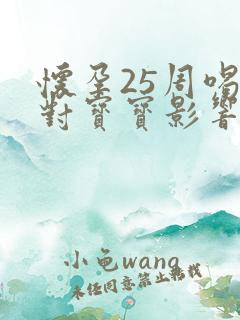 懷孕25周喝
對寶寶影響
小龟wang
未任同意禁止转载